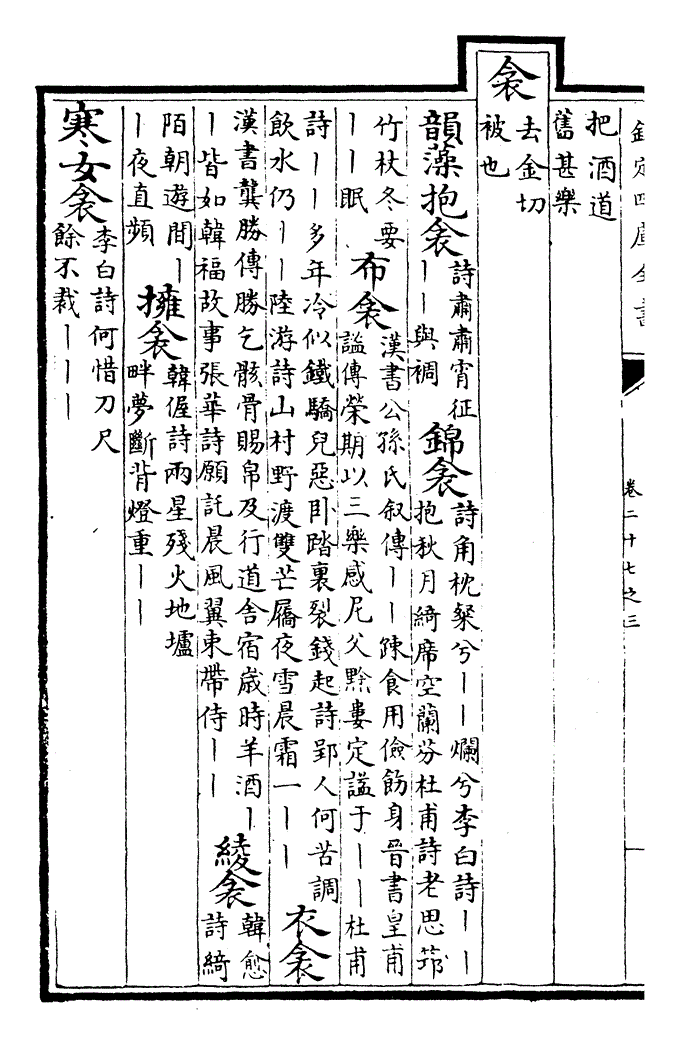 欽定四庫全書
卷二十七之三
把酒道
舊甚樂
衾
去金切
被也
韻藻抱衾
詩肅肅宵征
丨丨與裯
錦衾
詩角枕粲兮丨丨爛兮李白詩丨丨
抱秋月綺席空蘭芬杜甫詩老思筇
竹杖冬要
丨丨眠
布衾
漢書公孫氏叙傳丨丨踈食用儉飭身晉書皇甫
謚傳榮期以三樂感尼父黔婁定謚于丨丨杜甫
詩丨丨多年冷似鐵驕兒惡卧踏裏裂錢起詩郢人何苦調
飲水仍丨丨陸游詩山村野渡雙芒屩夜雪晨霜一丨丨
衣衾
漢書龔勝傳勝乞骸骨賜帛及行道舍宿歲時羊酒丨
丨皆如韓福故事張華詩願託晨風翼束帶侍丨丨
綾衾
韓愈
詩綺
陌朝遊間丨
丨夜直頻
擁衾
韓偓詩兩星殘火地壚
畔夢斷背燈重丨丨
寒女衾
李白詩何惜刀尺
餘不裁丨丨丨